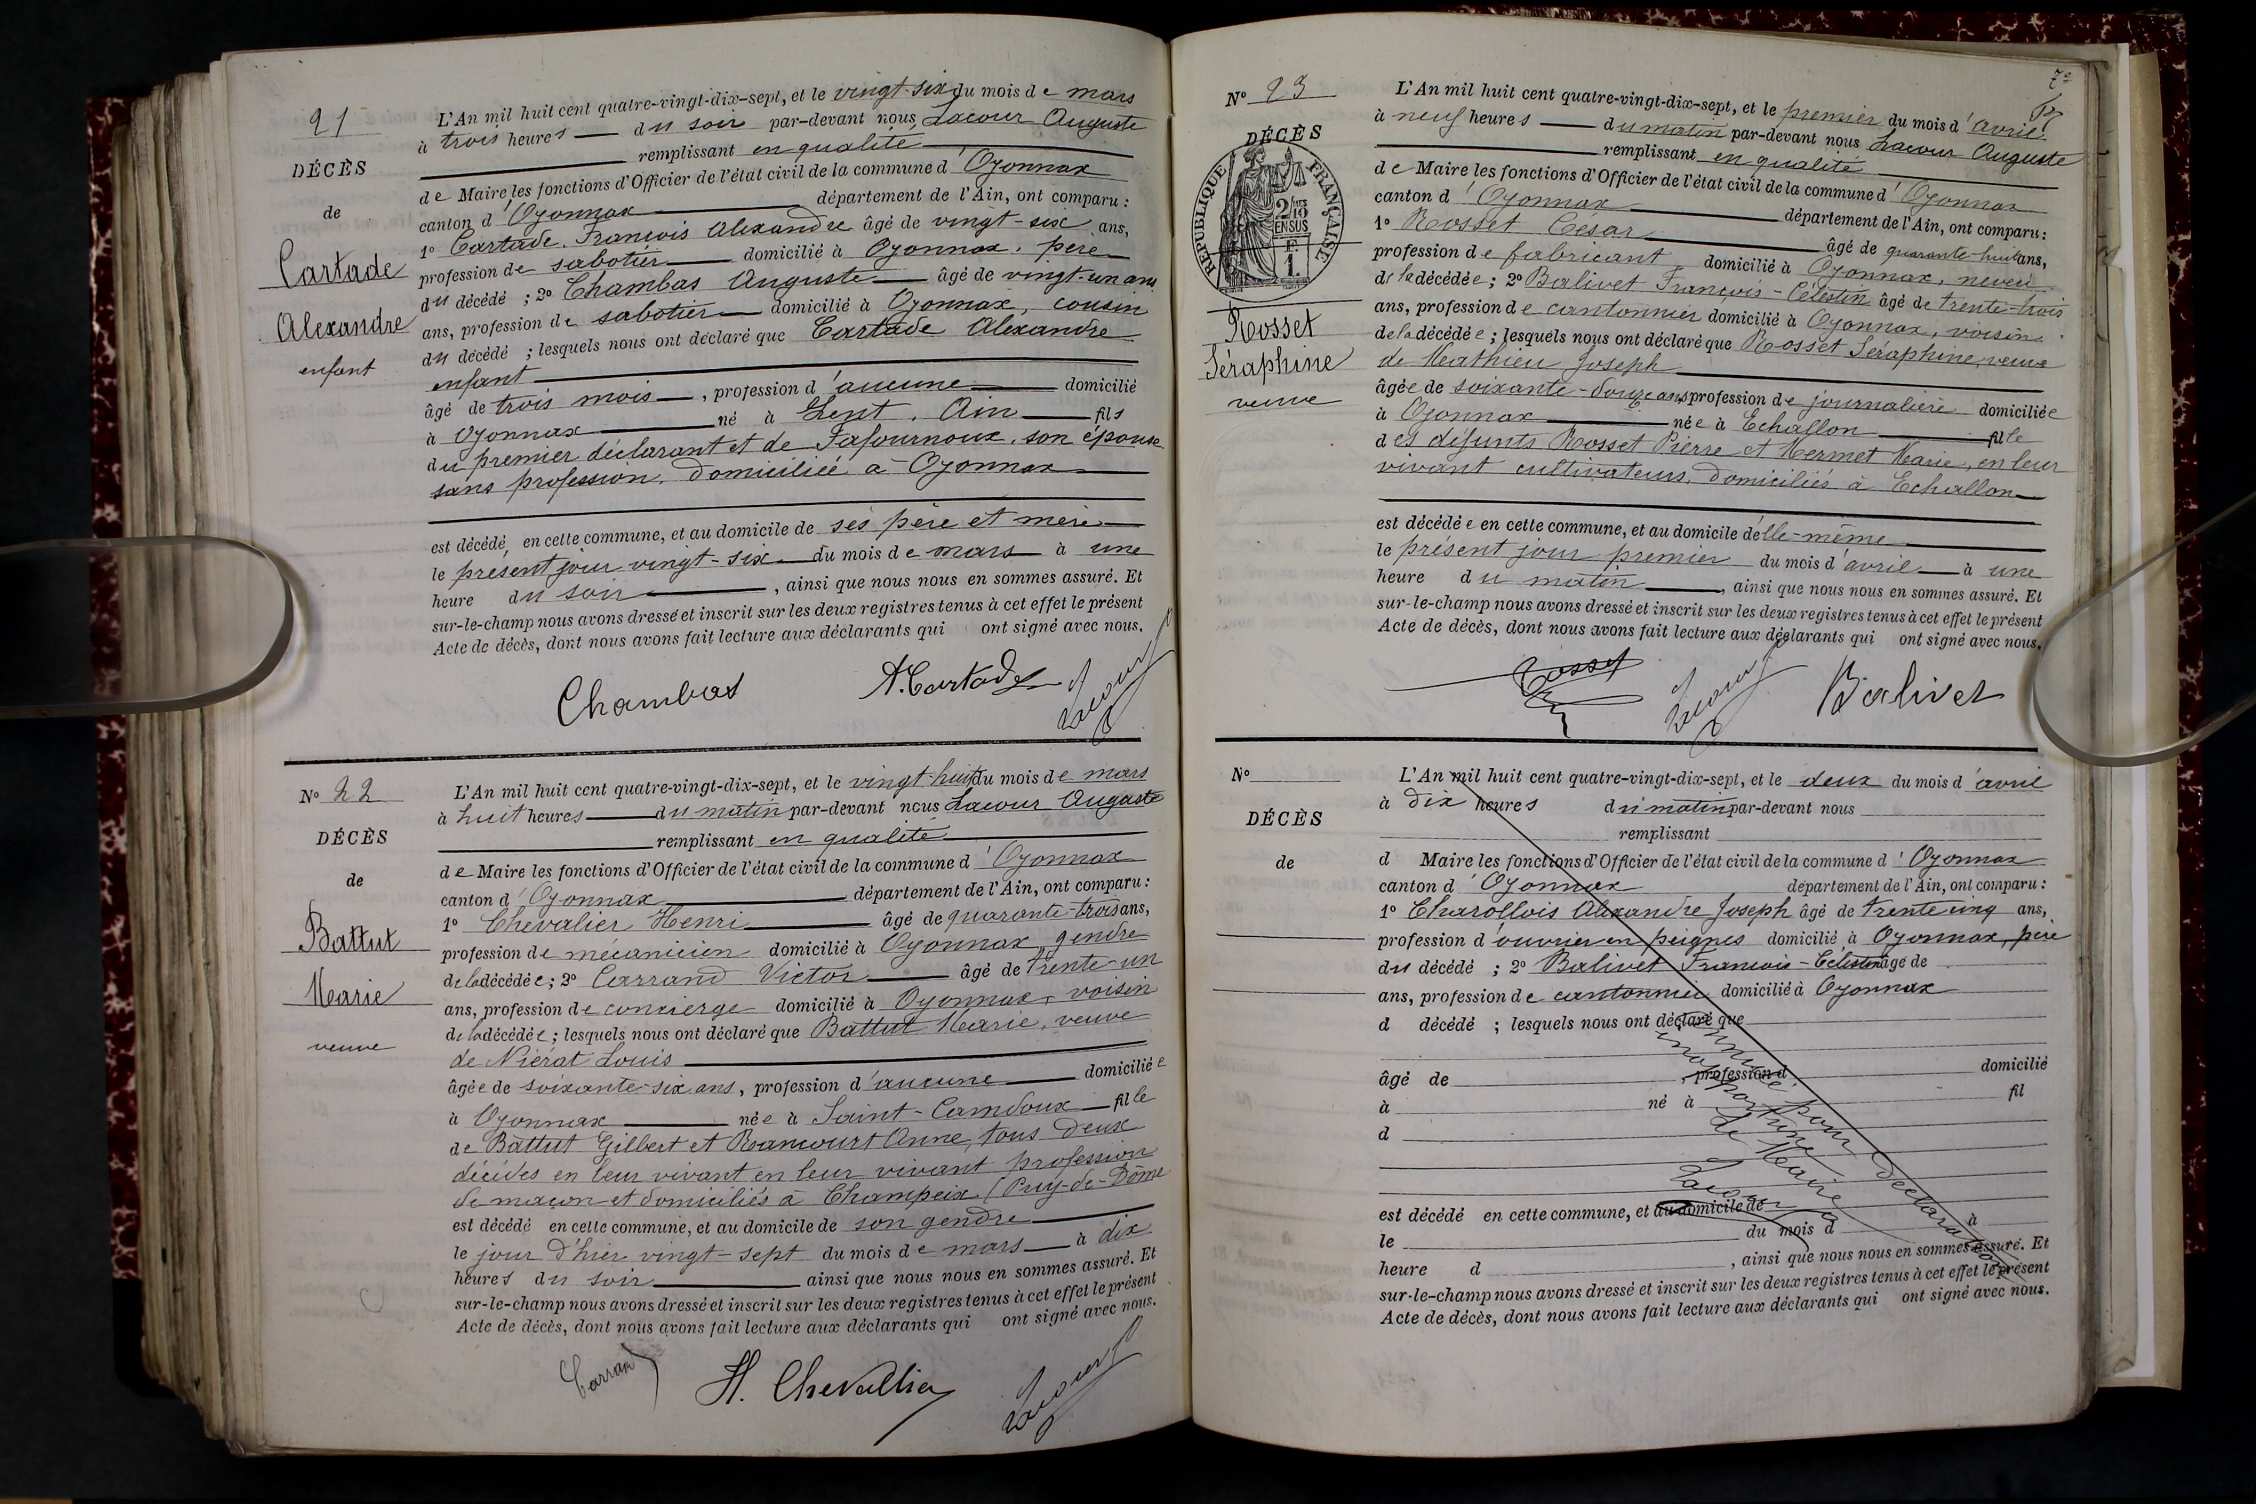 21
DÉCÈS
de
Cartade
Alexandre
enfant
L'An mil huit cent quatre-vingt-dix-sept, et le vingt-six du mois de mars
à trois heures du soir par-devant nous Lacour Auguste
remplissant en qualité
de Maire les fonctions d'Officier de l'état civil de la commune d'Oyonnax
canton d'Oyonnax département de l'Ain, ont comparu :
1º Cartade François Alexandre âgé de vingt-six ans,
profession de sabotier domicilié à Oyonnax, père
du décédé ; 2º Chambas Auguste âgé de vingt-un ans
ans, profession de sabotier domicilié à Oyonnax, cousin
du décédé ; lesquels nous ont déclaré que Cartade Alexandre
enfant
âgé de trois mois, profession d'aucune domicilié
à Oyonnax né à Lent, Ain fils
du premier déclarant et de Fafournoux, son épouse
sans profession, domiciliée à Oyonnax
est décédé en cette commune, et au domicile de ses père et mère
le présent jour vingt-six du mois de mars à une
heure du soir, ainsi que nous nous en sommes assuré. Et
sur-le-champ nous avons dressé et inscrit sur les deux registres tenus à cet effet le présent
Acte de décès, dont nous avons fait lecture aux déclarants qui ont signé avec nous.
Chambas A. Cartade Lacour
Nº 22
DÉCÈS
de
Battut
Marie
veuve
L'An mil huit cent quatre-vingt-dix-sept, et le vingt-huit du mois de mars
à huit heures du matin par-devant nous Lacour Auguste
remplissant en qualité
de Maire les fonctions d'Officier de l'état civil de la commune d'Oyonnax
canton d'Oyonnax département de l'Ain, ont comparu :
1º Chevalier Henri âgé de quarante-trois ans,
profession de mécanicien domicilié à Oyonnax, gendre
de la décédée ; 2º Carrand Victor âgé de trente-un
ans, profession de concierge domicilié à Oyonnax, voisin
de la décédée ; lesquels nous ont déclaré que Battut Marie, veuve
de Niérat Louis
âgée de soixante-six ans, profession d'aucune domiciliée
à Oyonnax née à Saint-Camdoux fille
de Battut Gilbert et Rancourt Anne, tous deux
décédés en leur vivant en leur vivant profession
de maçon et domiciliés à Champeix (Puy-de-Dôme
est décédé en cette commune, et au domicile de son gendre
le jour d'hier vingt-sept du mois de mars à dix
heures du soir ainsi que nous nous en sommes assuré. Et
sur-le-champ nous avons dressé et inscrit sur les deux registres tenus à cet effet le présent
Acte de décès, dont nous avons fait lecture aux déclarants qui ont signé avec nous.
Carrand H. Chevallier Lacour
Nº 23
DÉCÈS
RÉPUBLIQUE FRANÇAISE
2/10
EN SUS
F
1
Rosset
Séraphine
veuve
L'An mil huit cent quatre-vingt-dix-sept, et le premier du mois d'avril
à neuf heures du matin par-devant nous Lacour Auguste
remplissant en qualité
de Maire les fonctions d'Officier de l'état civil de la commune d'Oyonnax
canton d'Oyonnax département de l'Ain, ont comparu :
1º Rosset César âgé de quarante-huit ans,
profession de fabricant domicilié à Oyonnax, neveu
de la décédée ; 2º Balivet François-Célestin âgé de trente-trois
ans, profession de cantonnier domicilié à Oyonnax, voisin
de la décédée ; lesquels nous ont déclaré que Rosset Séraphine, veuve
de Mathieu Joseph
âgée de soixante-douze ans, profession de journalière domiciliée
à Oyonnax née à Echallon fille
des défunts Rosset Pierre et Mermet Marie, en leur
vivant cultivateurs, domiciliés à Echallon
est décédée en cette commune, et au domicile d'elle-même
le présent jour premier du mois d'avril à une
heure du matin, ainsi que nous nous en sommes assuré. Et
sur-le-champ nous avons dressé et inscrit sur les deux registres tenus à cet effet le présent
Acte de décès, dont nous avons fait lecture aux déclarants qui ont signé avec nous.
Rosset Lacour Balivet
Nº
DÉCÈS
de
L'An mil huit cent quatre-vingt-dix-sept, et le deux du mois d'avril
à dix heures du matin par-devant nous
remplissant
d Maire les fonctions d'Officier de l'état civil de la commune d'Oyonnax
canton d'Oyonnax département de l'Ain, ont comparu :
1º Charollois Alexandre Joseph âgé de trente cinq ans,
profession d'ouvrier en peignes domicilié à Oyonnax, père
du décédé ; 2º Balivet François-Célestin âgé de
ans, profession de cantonnier domicilié à Oyonnax
d décédé ; lesquels nous ont déclaré que
âgé de , profession d domicilié
à né à fil
d
est décédé en cette commune, et au domicile de
le du mois d à
heure d , ainsi que nous nous en sommes assuré. Et
sur-le-champ nous avons dressé et inscrit sur les deux registres tenus à cet effet le présent
Acte de décès, dont nous avons fait lecture aux déclarants qui ont signé avec nous.
Annulé pour déclaration
inopportune
le Maire
Lacour